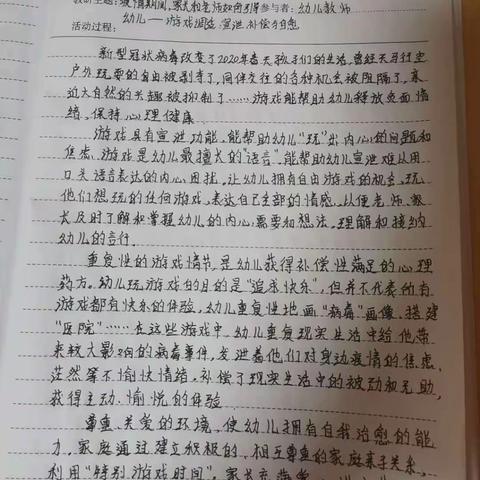 教研主题:疫情期间,家长和老师如何引导参与者:幼儿教师
幼儿——游戏调适、宣泄、补偿与自愈
活动过程:
新型冠状病毒改变了2020年春天孩子们的生活,曾经天马行空
户外玩耍的自由被剥夺了,同伴交往的各种机会被阻隔了,亲
近大自然的兴趣被抑制了……游戏能帮助幼儿释放负面情
绪、保持心理健康
游戏具有宣泄功能,能帮助幼儿“玩”出内心的问题和
焦虑,游戏是幼儿最擅长的“语言”,能帮助幼儿宣泄难以用
口头语言表达的内心困扰,让幼儿拥有自由游戏的机会,玩
他们想玩的任何游戏,表达自己全部的情感,以便老师、家
长及时了解和掌握幼儿的内心需要和想法,理解和接纳
幼儿的言行.
重复性的游戏情节,是幼儿获得补偿性满足的心理
药方。幼儿玩游戏的目的是“追求快乐”,但并不代表所有
游戏都有快乐的体验,幼儿重复性地画“病毒”画像、搭建
“医院”……在这些游戏中,幼儿重复现实生活中给他带
来较大影响的病毒事件,发泄着他们对身边疫情的焦虑、
茫然等不愉快情绪,补偿了现实生活中的被动和无助,
获得主动、愉悦的体验
尊重、关爱的环境,使幼儿拥有自我治愈的能
力,家庭通过建立积极的、相互尊重的家庭亲子关系,
利用“特别游戏时间”,家长充满爱